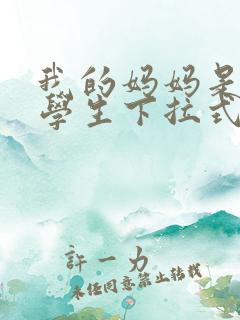 我的妈妈是
學生下拉式
許一力
未经同意禁止转载